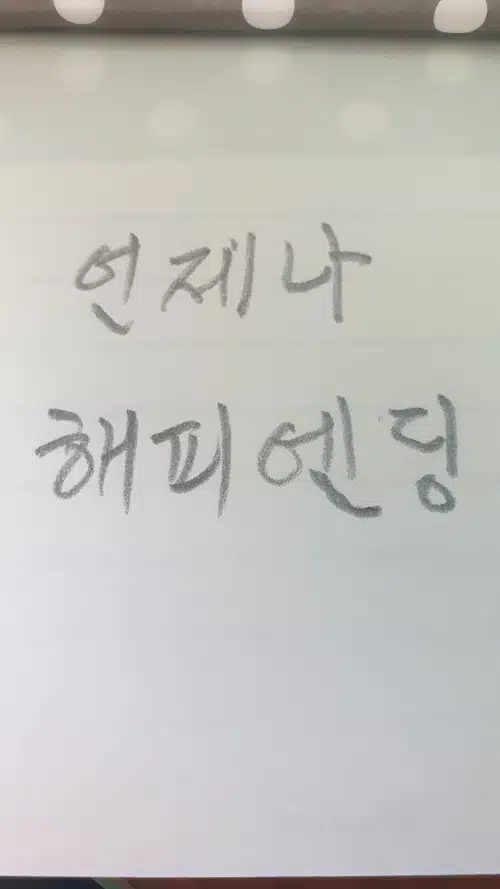 언제나
해피엔딩